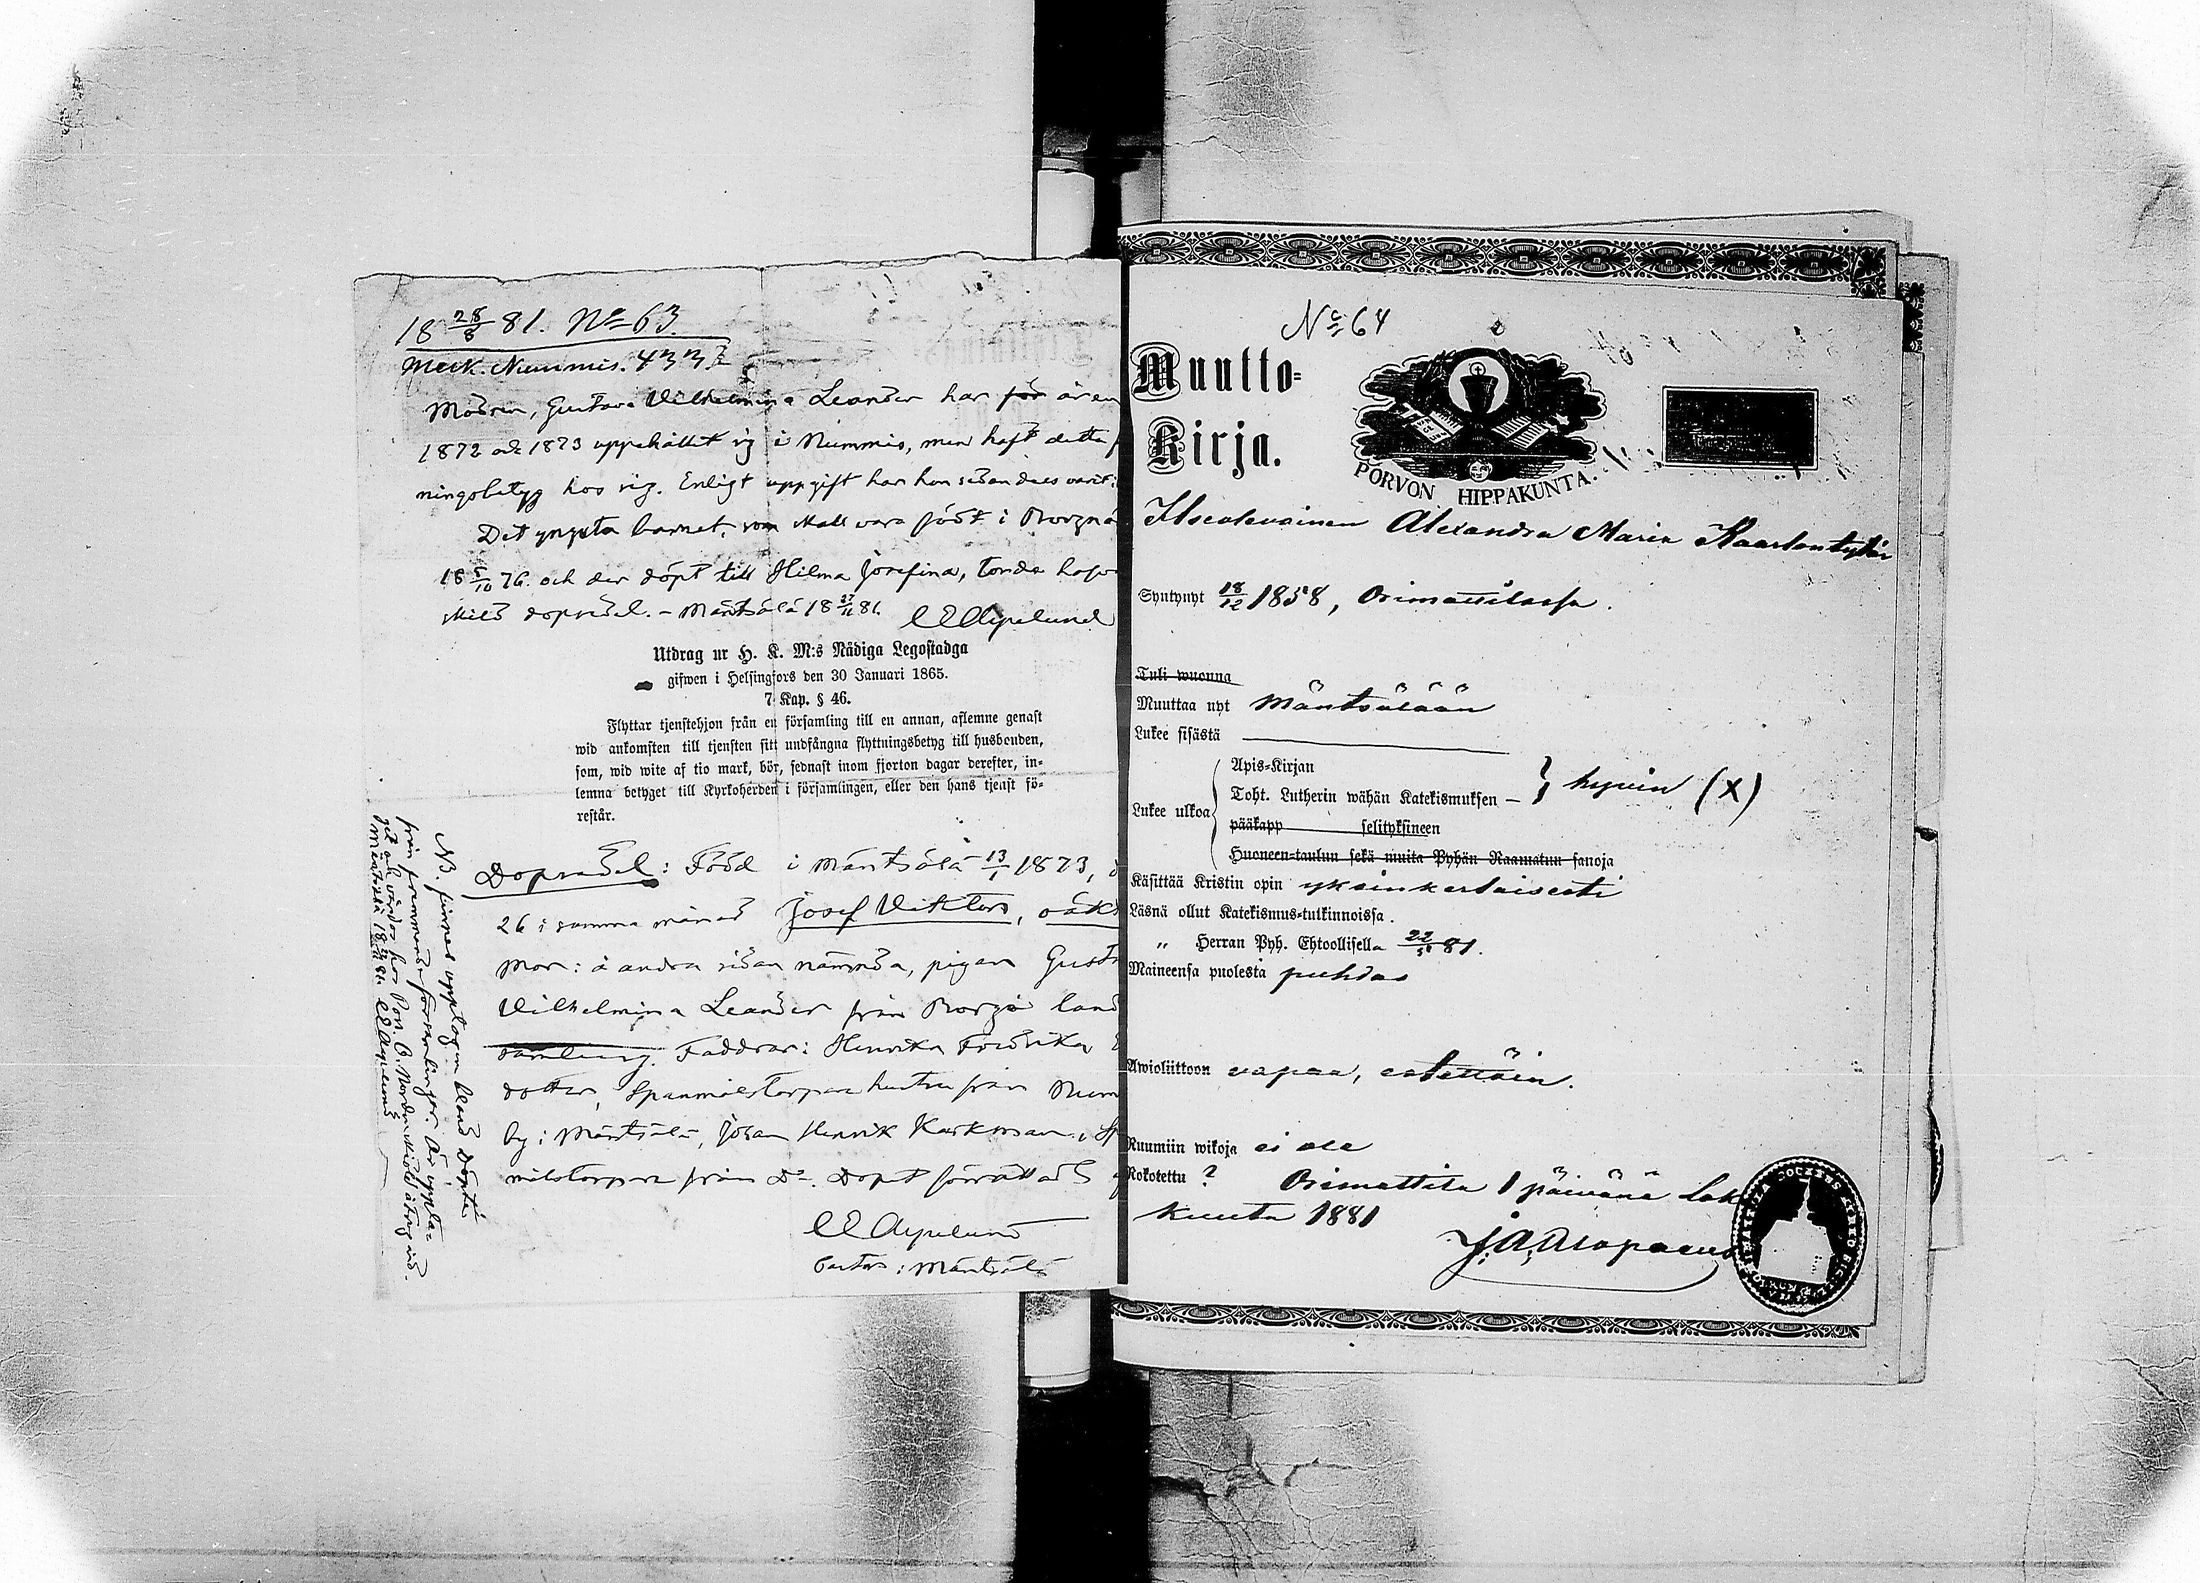 18 28/8 81. No 63
Meck. Nummis. 433.
Modren, Gustava Vilhelmina Leander har för åren
1872 och 1873 uppehållit sig i Nummis, men haft detta
ningsbetyg hos sig. Enligt uppgift har hon sedan dess varit
Det yngsta barnet, som skall vara född i Borgnä
18 5/10 76. och der döpt till Hilma Josefina, torde
skild dopsedel. – Mäntsälä 18 27/11 81. C E Aypelund
Utdrag ur H. K. M:s Nådiga Legostadga
gifwen i Helsingfors den 30 Januari 1865.
7 Kap. § 46.
Flyttar tjenstehjon från en församling till en annan, aflemne genast
wid ankomsten till tjensten sitt undfångna flyttningsbetyg till husbonden,
som, wid wite af tio mark, bör, sednast inom fjorton dagar derefter, in=
lemna betyget till Kyrkoherden i församlingen, eller den hans tjenst fö=
restår.
Dopsedel: Född i Mäntsälä 13/1 1873,
26 i samma månad Josef Viktor, oäkt
Mor: å andra sidan nämnda, pigan Gust
Vilhelmina Leander från Borgå land
samling. Faddrar: Henrika Fredrika
dotter, Spanmålstorpare hustru från Num
by i Mäntsälä, Johan Henrik Karkman, Sp
målstorpare från Do. Dopet förrättad
C E Aypelund
Pastor i Mäntsälä
NB. finnes upptagen bland döpta
från främmande församlingar.
Mäntsälä C E Aypelund
No 64
Muutto=
Kirja.
PORVON HIPPAKUNTA.
Itsealewainen Alexandra Maria Kaarlontytär
Syntynyt 18/12 1858, Orimattilassa.
Tuli wuonna
Muuttaa nyt Mäntsälään
Lukee sisästä
Lukee ulkoa
Apis=Kirjan
Toht. Lutherin wähän Katekismuksen – } hywin (X)
pääkapp selityksineen
Huoneen=taulun sekä muita Pyhän Raamatun sanoja
Käsittää Kristin opin yksinkertaisesti
Läsnä ollut Katekismus=tutkinnoissa.
„ Herran Pyh. Ehtoollisella 22/5 81.
Maineensa puolesta puhdas
Awioliittoon vapaa, estettöin.
Ruumiin wikoja ei ole
Rokotettu ?
Orimattila 1 päivänä Lok
kuuta 1881
J. A. Alopaeus